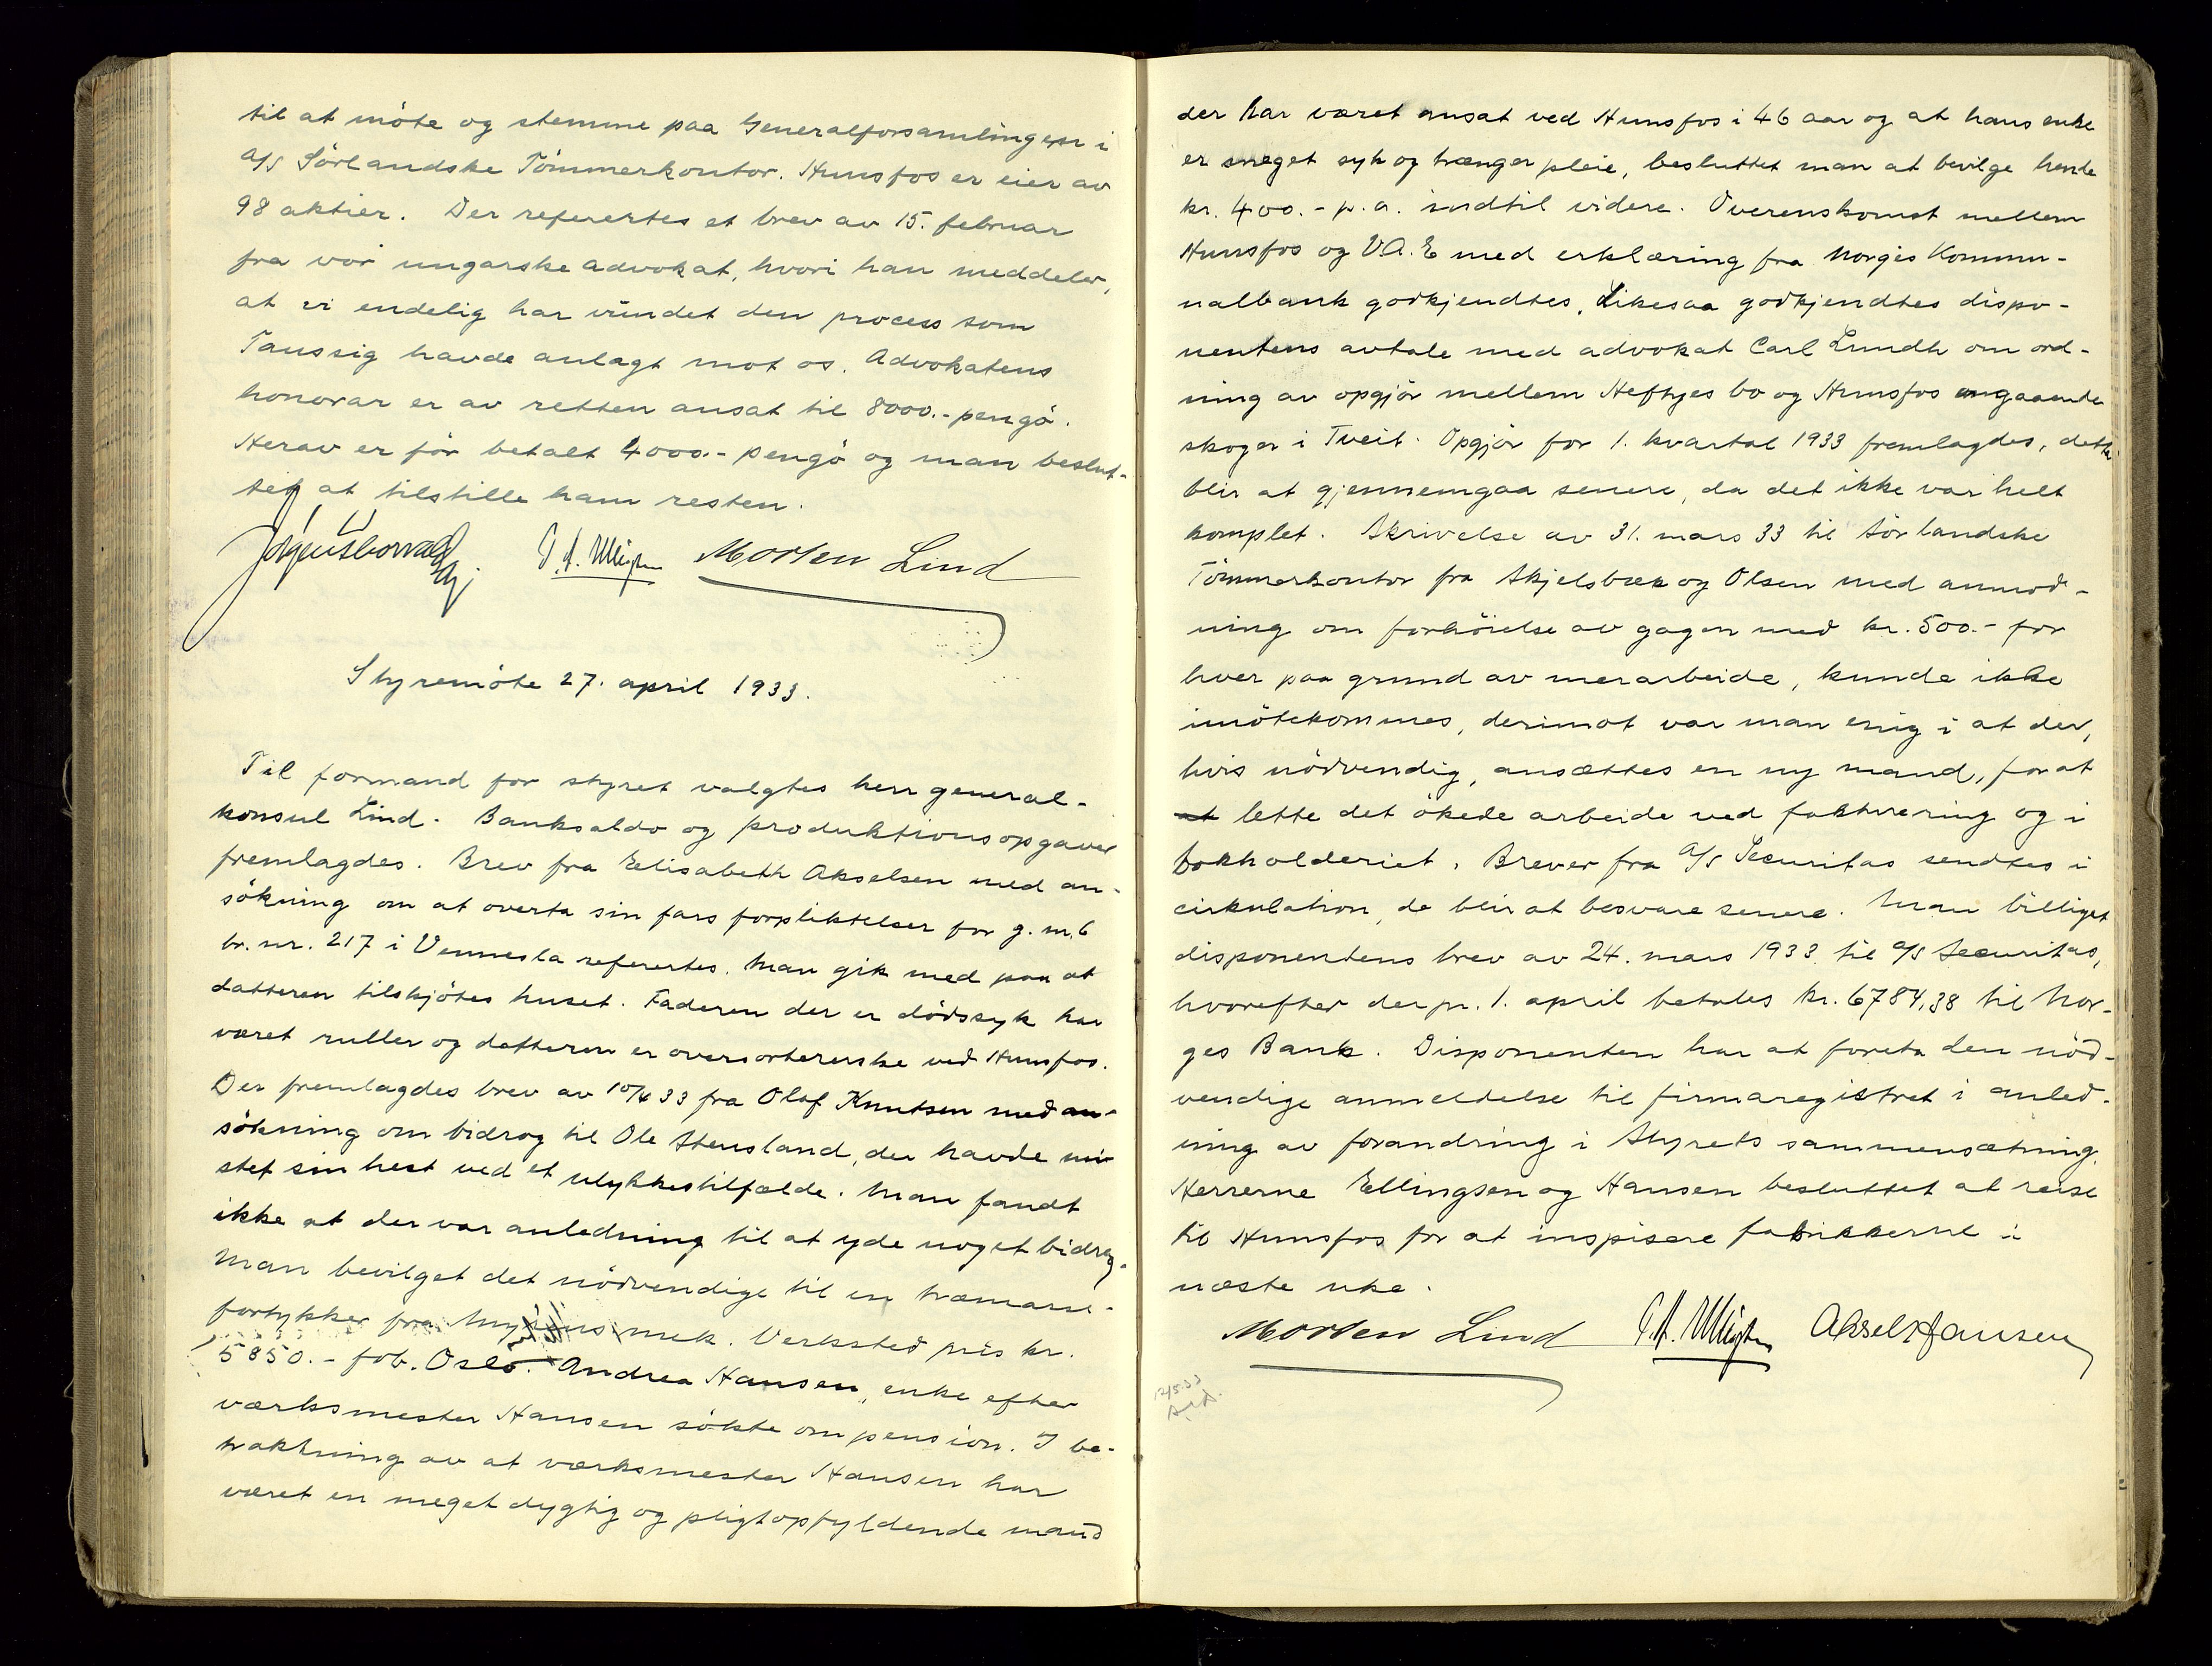 til at möte og stemme paa Generalforsamlingen i
A/S Sörlandske Tömmerkontor. Hunsfos er eier av
98 aktier. Der refertes et brev av 15. februar
fra vor ungarske advokat, hvori han meddeler,
at vi endelig har vundet den process som
Taussig havde anlagt mot os. Advokatens
honorar er av retten ansat til 8000.- pengö.
Herav er för betalt 4000.- pengö og man beslut-
tet at tilstille ham resten.
Morten Lind
Styremöte 27. april 1933.
Til formand for styret valgtes herr general-
konsul Lind. Banksaldo og produktionsopgaver
fremlagdes. Brev fra Elisabeth Akselsen med an-
sökning om at overta sin fars forpliktelser for g. nr. 6
br. nr. 217 i Vennesla refertes. Man gik med paa at
datteren tilskjötes huset. Faderen der er dödssyk har
været ruller og datteren er oversorterenske ved Hunsfos.
Der fremlagdes brev av 10/4 33 fra Olaf Knutsen med an-
sökning om bidrag til Ole Stensland, der havde mi-
stet sin hest ved et ulykkestilfælde. Man fandt
ikke at der var anledning til at yde noget bidrag.
Man bevilget det nödvendige til en træmasse-
fortykker fra Myrens mek. Verksted pris kr.
5850.- fob. Oslo. Andrea Hansen, enke efter
værksmester Hansen sökte om pension. I be-
traktning av at værksmester Hansen har
været en meget dygtig og pligtopfyldende mand
der har været ansat ved Hunsfos i 46 aar og at hans enke
er meget syk og trænger pleie, besluttet man at bevilge hende
kr. 400.- p.a. indtil videre. Overenskomst mellem
Hunsfos og V.A.E med erklæring fra Norges Kommu-
nalbank godkjendtes. Likesaa godkjendtes dispo-
nentens avtale med advokat Carl Lundh om ord-
ning av opgjör mellem Heftyes bo og Hunsfos angaaende
skoger i Tveit. Opgjör for 1. kvartal 1933 fremlagdes, dette
blir at gjennemgaa senere, da det ikke var helt
komplet. Skrivelse av 31. mars 33 til Sörlandske
Tömmerkontor fra Skjelsbæk og Olsen med anmod-
ning om forhöielse av gagen med kr. 500.- for
hver paa grund av merarbeide, kunde ikke
imötekommes, derimot var man enig i at der,
hvis nödvendig, ansættes en ny mand, for at
at lette det ökede arbeide ved fakturering og i
bokholderiet. Brever fra A/S Securitas sendtes i
cirkulation, de blir at besvare senere. Man billiget
disponentens brev av 24. mars 1933 til A/S Securitas,
hvorefter der pr. 1. april betales kr. 6784,38 til Nor-
ges Bank. Disponenten har at foreta den nöd-
vendige anmeldelse til firmaregistret i anled-
ning av forandring i Styrets sammensætning.
Herrerne Ellingsen og Hansen besluttet at reise
til Hunsfos for at inspisere fabrikkerne i
næste uke.
Morten Lind Aksel Hansen
12/5.33